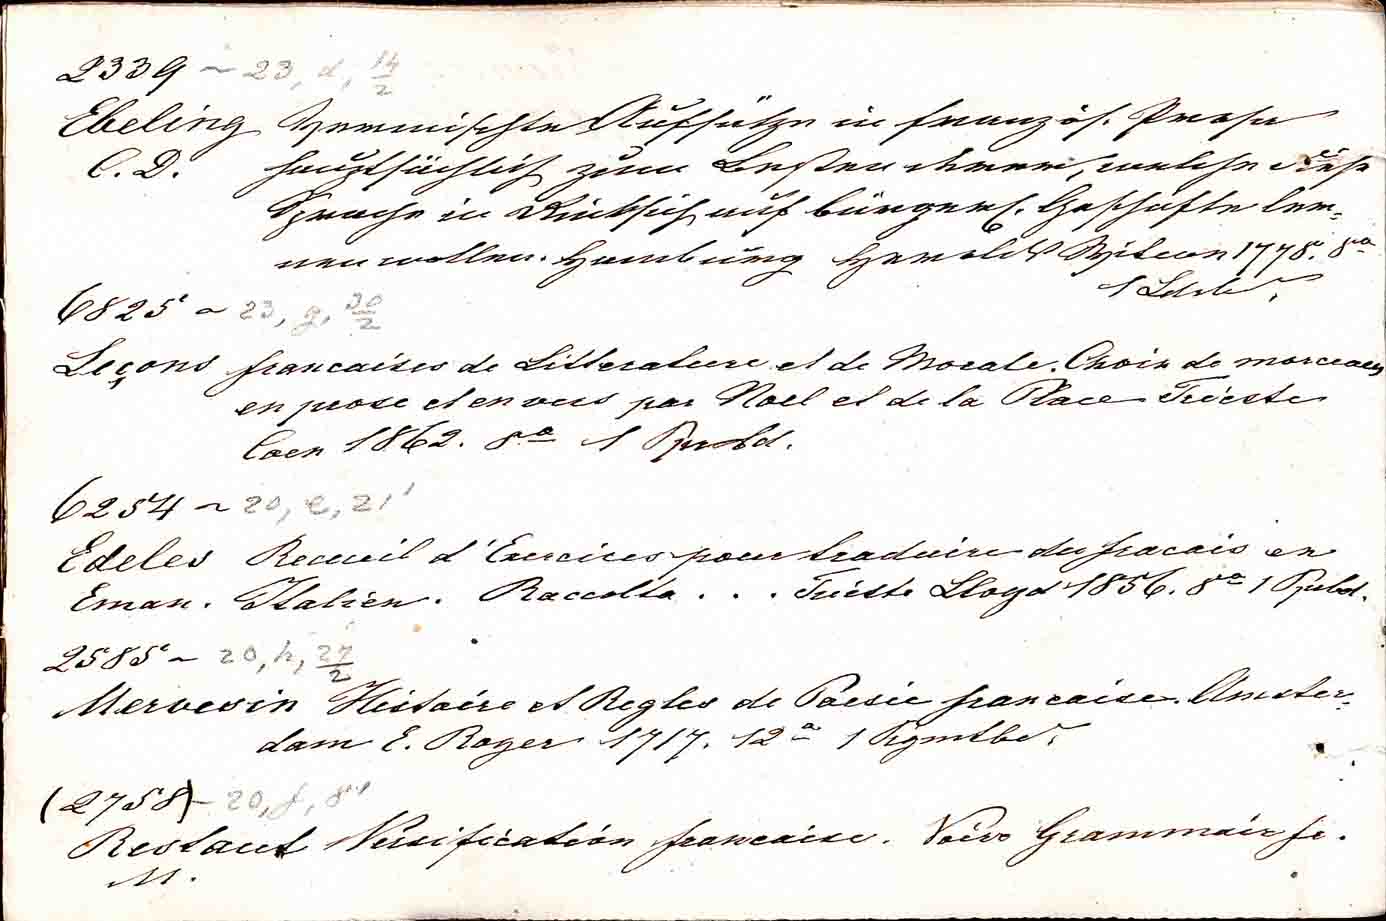 2339 ~ 23, d, 14/2
Ebeling Vermischte Aufsätze in französ. Prosa
C. D. hauptsächlich zum Besten derer, welche diese
Sprache in Rücksicht auf bürgerl. Geschäfte ler-
nen wollen. Hamburg Herold Witwe 1778. 8º
1 Ldrbd
6825 ~ 23, g, 30/2
Leçons francaises de Litterature et de Morale. Choix de morceaux
en prose et en vers par Noel et de la Place Trieste
Coen 1862. 8º 1 Ppbd.
6254 ~ 20, e, 21'
Edeles Recueil d'Exercices pour traduire du fracais en
Eman. Italien. Raccolta . . . Trieste Lloyd 1856. 8º 1 Ppbd.
2585 ~ 20, h, 27/2
Mervesin Histoire et Regles de Poesie francaise. Amster-
dam E. Roger 1717. 12º 1 Prgmtbd.
(2758) ~ 20, f, 8'
Restaut Versification francaise. Voir Grammair fr.
M.